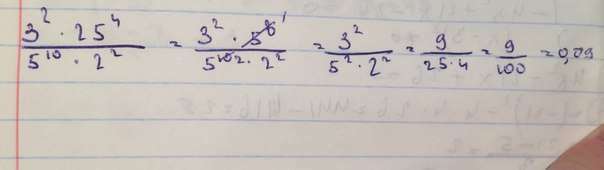 3² · 25⁴ / 5¹⁰ · 2² = 3² · 5⁸ ¹ / 5¹⁰ ² · 2² = 3² / 5² · 2² = 9 / 25 · 4 = 9 / 100 = 0,09